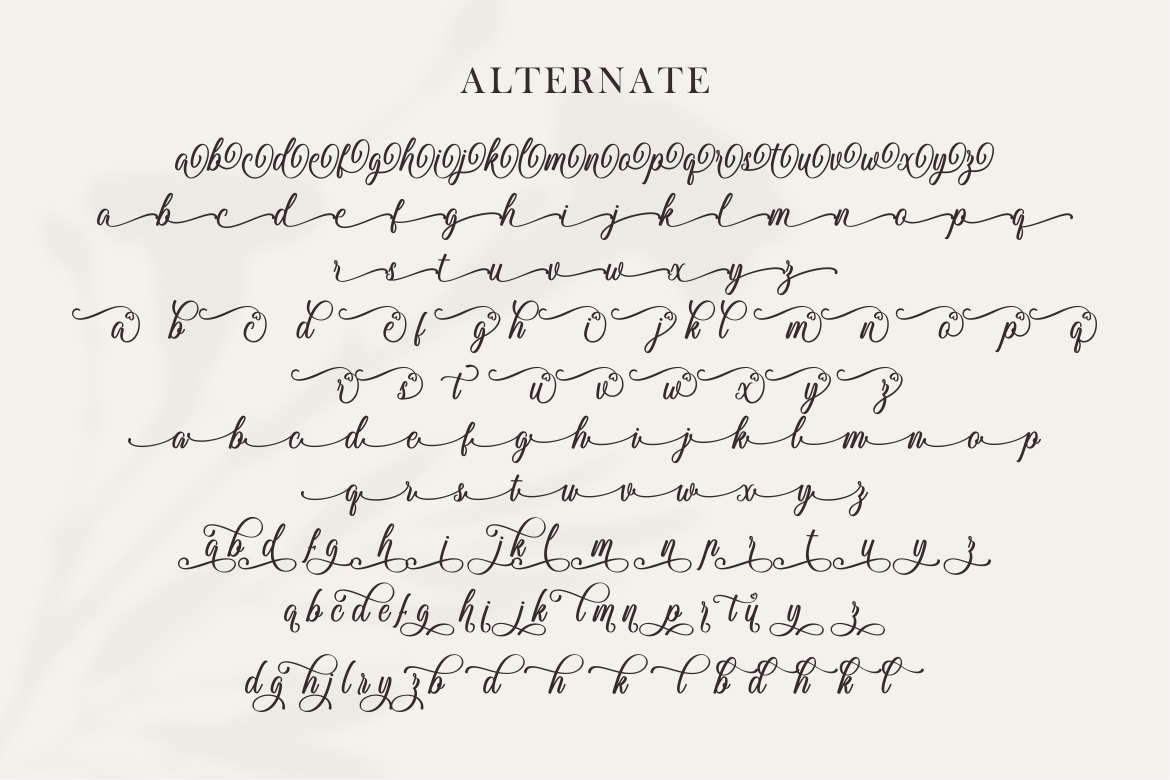 ALTERNATE
a b c d e f g h i j k l m n o p q r s t u v w x y z
a b c d e f g h i j k l m n o p q
r s t u v w x y z
a b c d e f g h i j k l m n o p q
r s t u v w x y z
a b c d e f g h i j k l m n o p
q r s t u v w x y z
a b d f g h i j k l m n p r t u y z
a b c d e f g h i j k l m n p r t u y z
d g h j l r y z b d h k l b d h k l